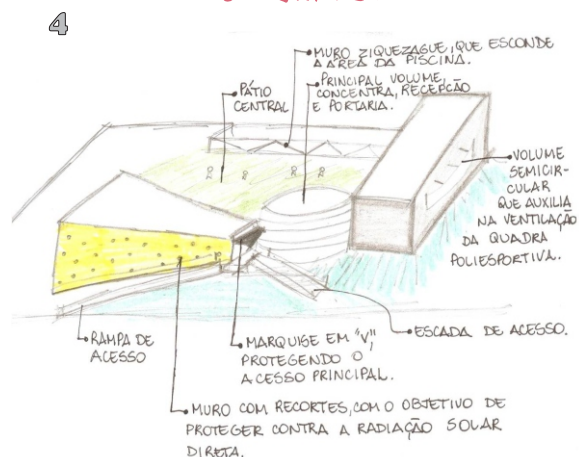 4
MURO ZIQUEZAGUE, QUE ESCONDE
A ÁREA DA PISCINA.
PÁTIO
CENTRAL
PRINCIPAL VOLUME,
CONCENTRA, RECEPÇÃO
E PORTARIA.
VOLUME
SEMICIR-
CULAR
QUE AUXILIA
NA VENTILAÇÃO
DA QUADRA
POLIESPORTIVA.
RAMPA DE
ACESSO
MARQUISE EM "V",
PROTEGENDO O
ACESSO PRINCIPAL.
ESCADA DE ACESSO.
MURO COM RECORTES, COM O OBJETIVO DE
PROTEGER CONTRA A RADIAÇÃO SOLAR
DIRETA.